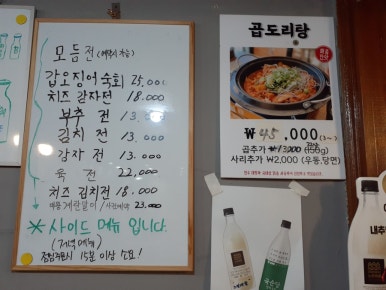 모듬전
갑오징어숙회 25,000
치즈 감자전 18.000
부추 전 13.000
김치 전 13.000
감자 전 13.000
육 전 22,000
치즈 김치전 18.000
계란말이 23.000
※ 사이드 메뉴 입니다.
(저녁메뉴)
점심주문시 15분 이상 소요!
곱도리탕
₩45,000
곱추가 ₩13,000 (150g)
사리추가 ₩2,000 (우동,당면)
내추